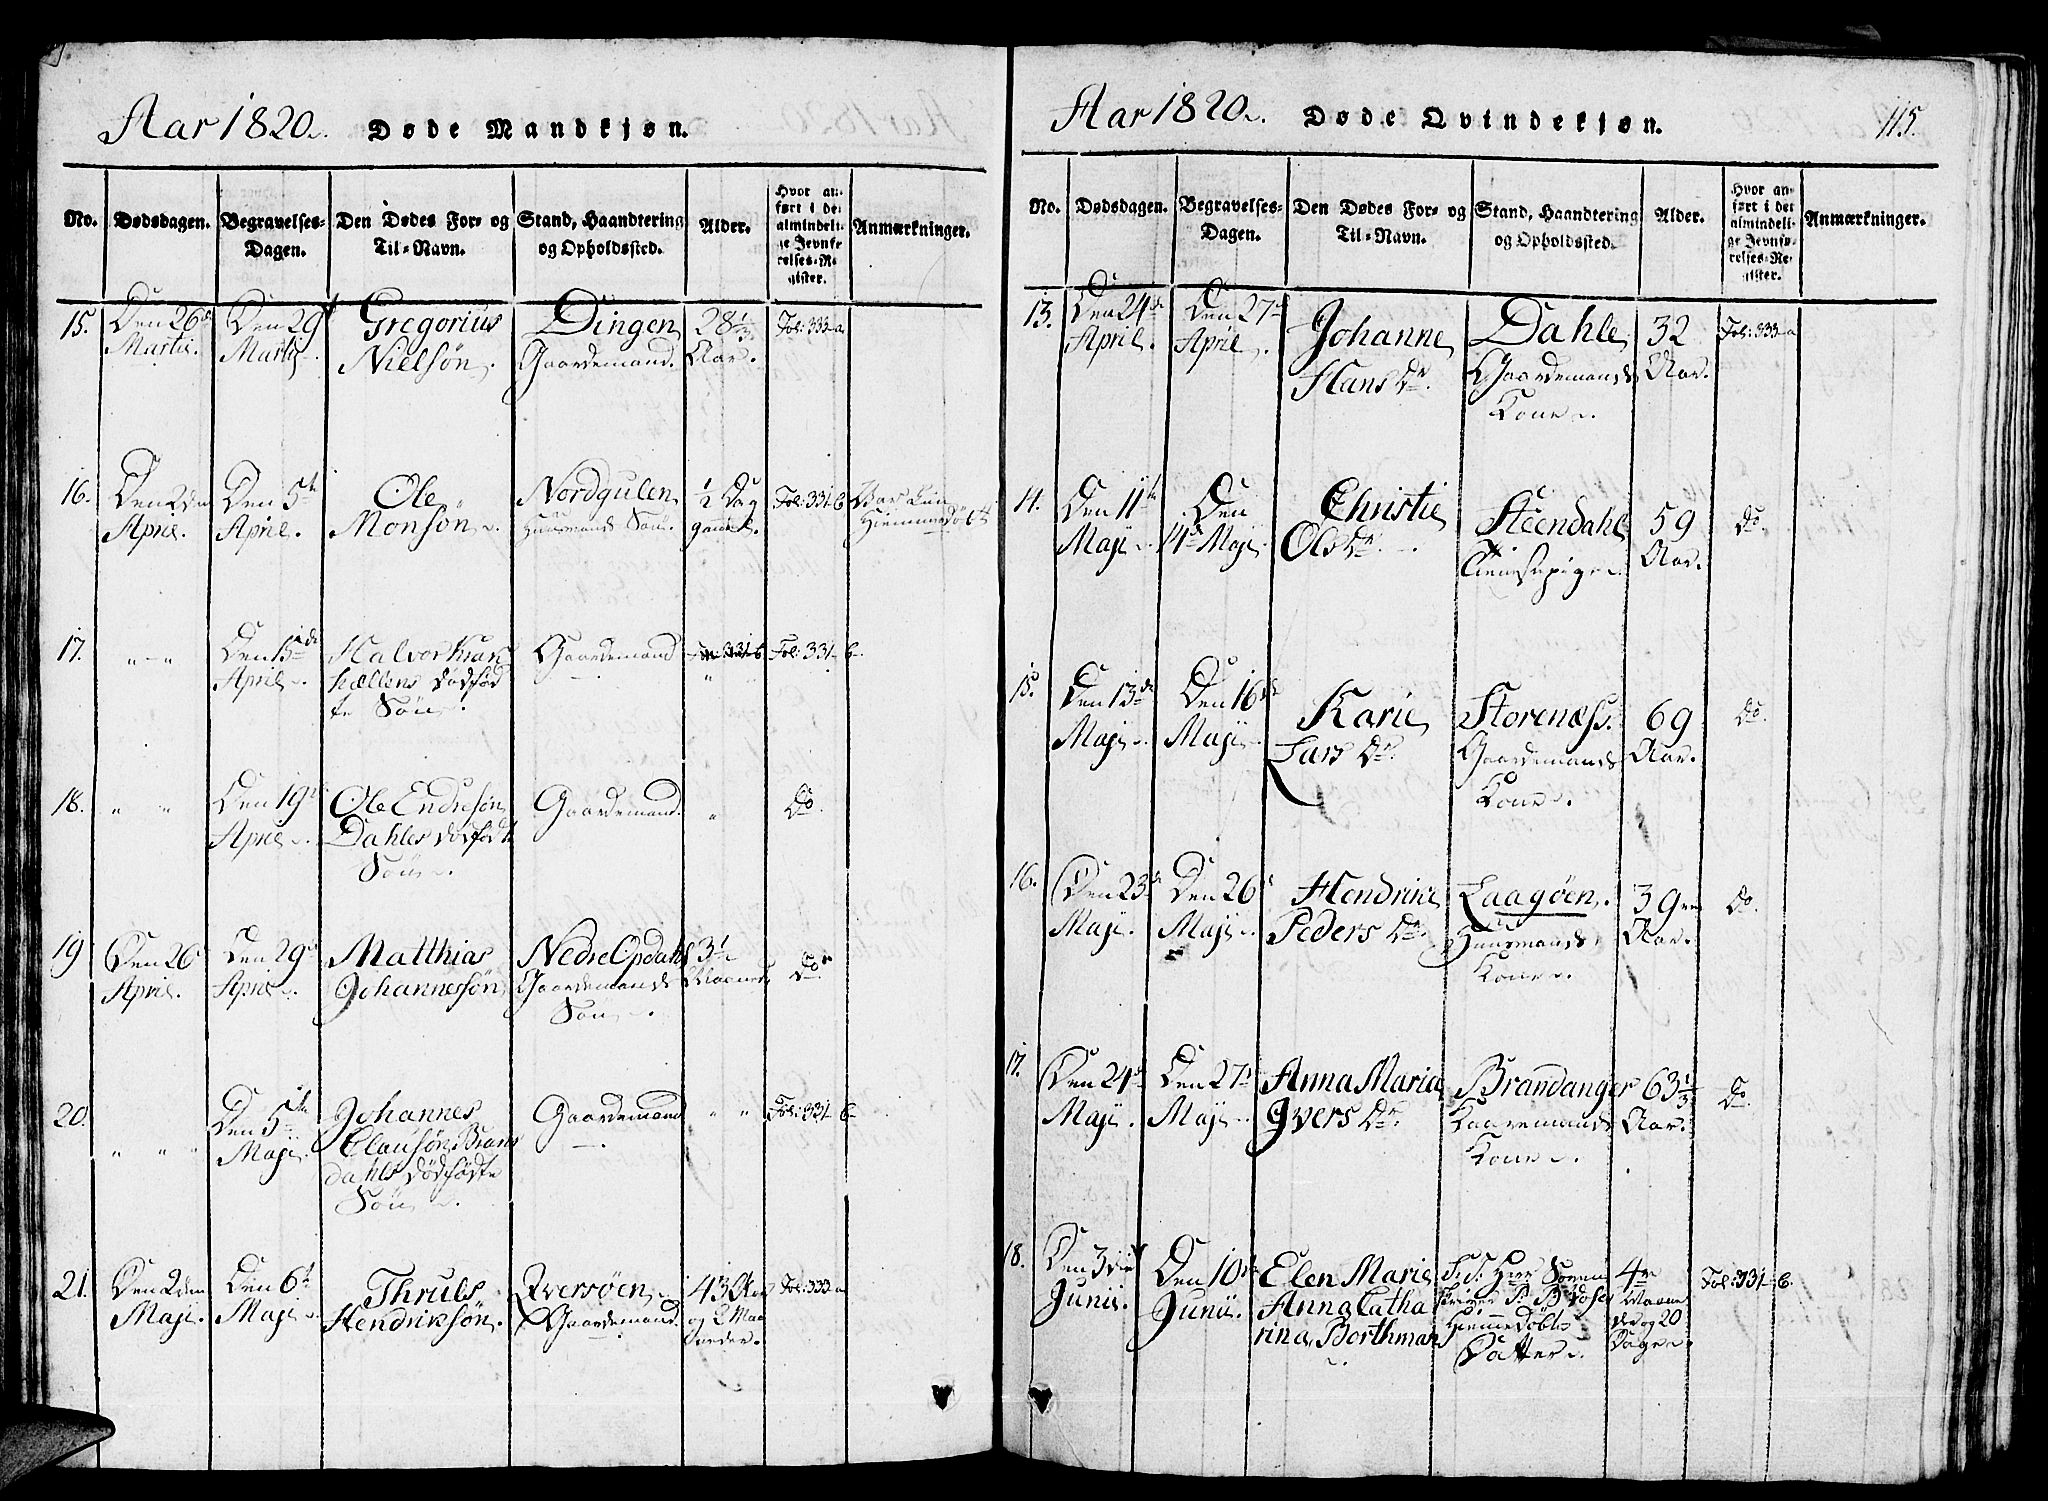 Aar 1820. Døde Mandkjøn.
No. Dødsdagen. Begravelses-Dagen. Den Dødes For- og Til-Navn. Stand, Haandtering og Opholdssted. Alder. Hvor anført i det almindelige Jevnførelses-Register. Anmærkninger.
15. Den 26de Den 29de Gregorius Dingen 28 1/3 Fol: 333 a
Martii. Martii. Nielsøn. Gaardemand. Aar.
16. Den 2den Den 5te Ole Nordgulen ½ Dag Fol: 331 b
April. April. Monsøn. Huusmands Søn. gammel. Hiemmedøbt
17. " — " Den 15de Halvor Gaardemand Fol: 331 b
April. dødfød
te Søn. "
18. " " Den 19de Ole Endresøn Gaardemand. " Do.
April. Dahles dødfødte
Søn.
19 Den 26de Den 29de Matthias Nedre Opdahl 3½ Do
April. April. Johannessøn Gaardemands Maaned
Søn.
20. " " " Den 5te Johannes Gaardemand " " Fol: 331 b
Maji Clausøn Brans
dahls dødfødte
Søn.
21. Den 2den Den 6te Thruls Qversøen 43 Aar Fol: 333 a
Maji. Maji Hendriksøn. Gaardemand. og 2 Maa
neder.
Aar 1820. Døde Qvindekjøn. 115.
No. Dødsdagen. Begravelses-Dagen. Den Dødes For- og Til-Navn. Stand, Haandtering og Opholdssted. Alder. Hvor anført i det almindelige Jevnførelses-Register. Anmærkninger.
13. Den 24de Den 27de Johanne Dahle 32 Fol: 333 a
April. April. Hans Dr. Gaardemands Aar.
Kone.
14. Den 11te Den Christie Steendahl 59 Do.
Maji 14de Maji. Ols Dr. Tienestepige Aar.
15. Den 13de Den 16de Karie Storenæss. 69 Do.
Maji. Maji Lars Dr. Gaardemands Aar.
Kone.
16. Den 23de Den 26de Hendrine Laagøen. 39 Do.
Maji. Maji Peders Dr. Huusmands Aar.
Kone.
17. Den 24de Den 27de Anna Maria Brandanger 63 1/3 Do.
Maji. Maji Ivers Dr. Kaaremands Aar.
Kone.
18. Den 3die Den 10de Elen Marie S. T. Herr Soren 4re Fol: 331 b.
Junii. Junii. Anna Catha skriver Maane
rina Borthman Hiemmedøbte der og 20
Datter Dage